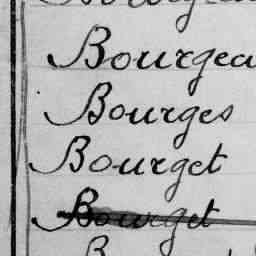 Bourgea
Bourges
Bourget
Bourget